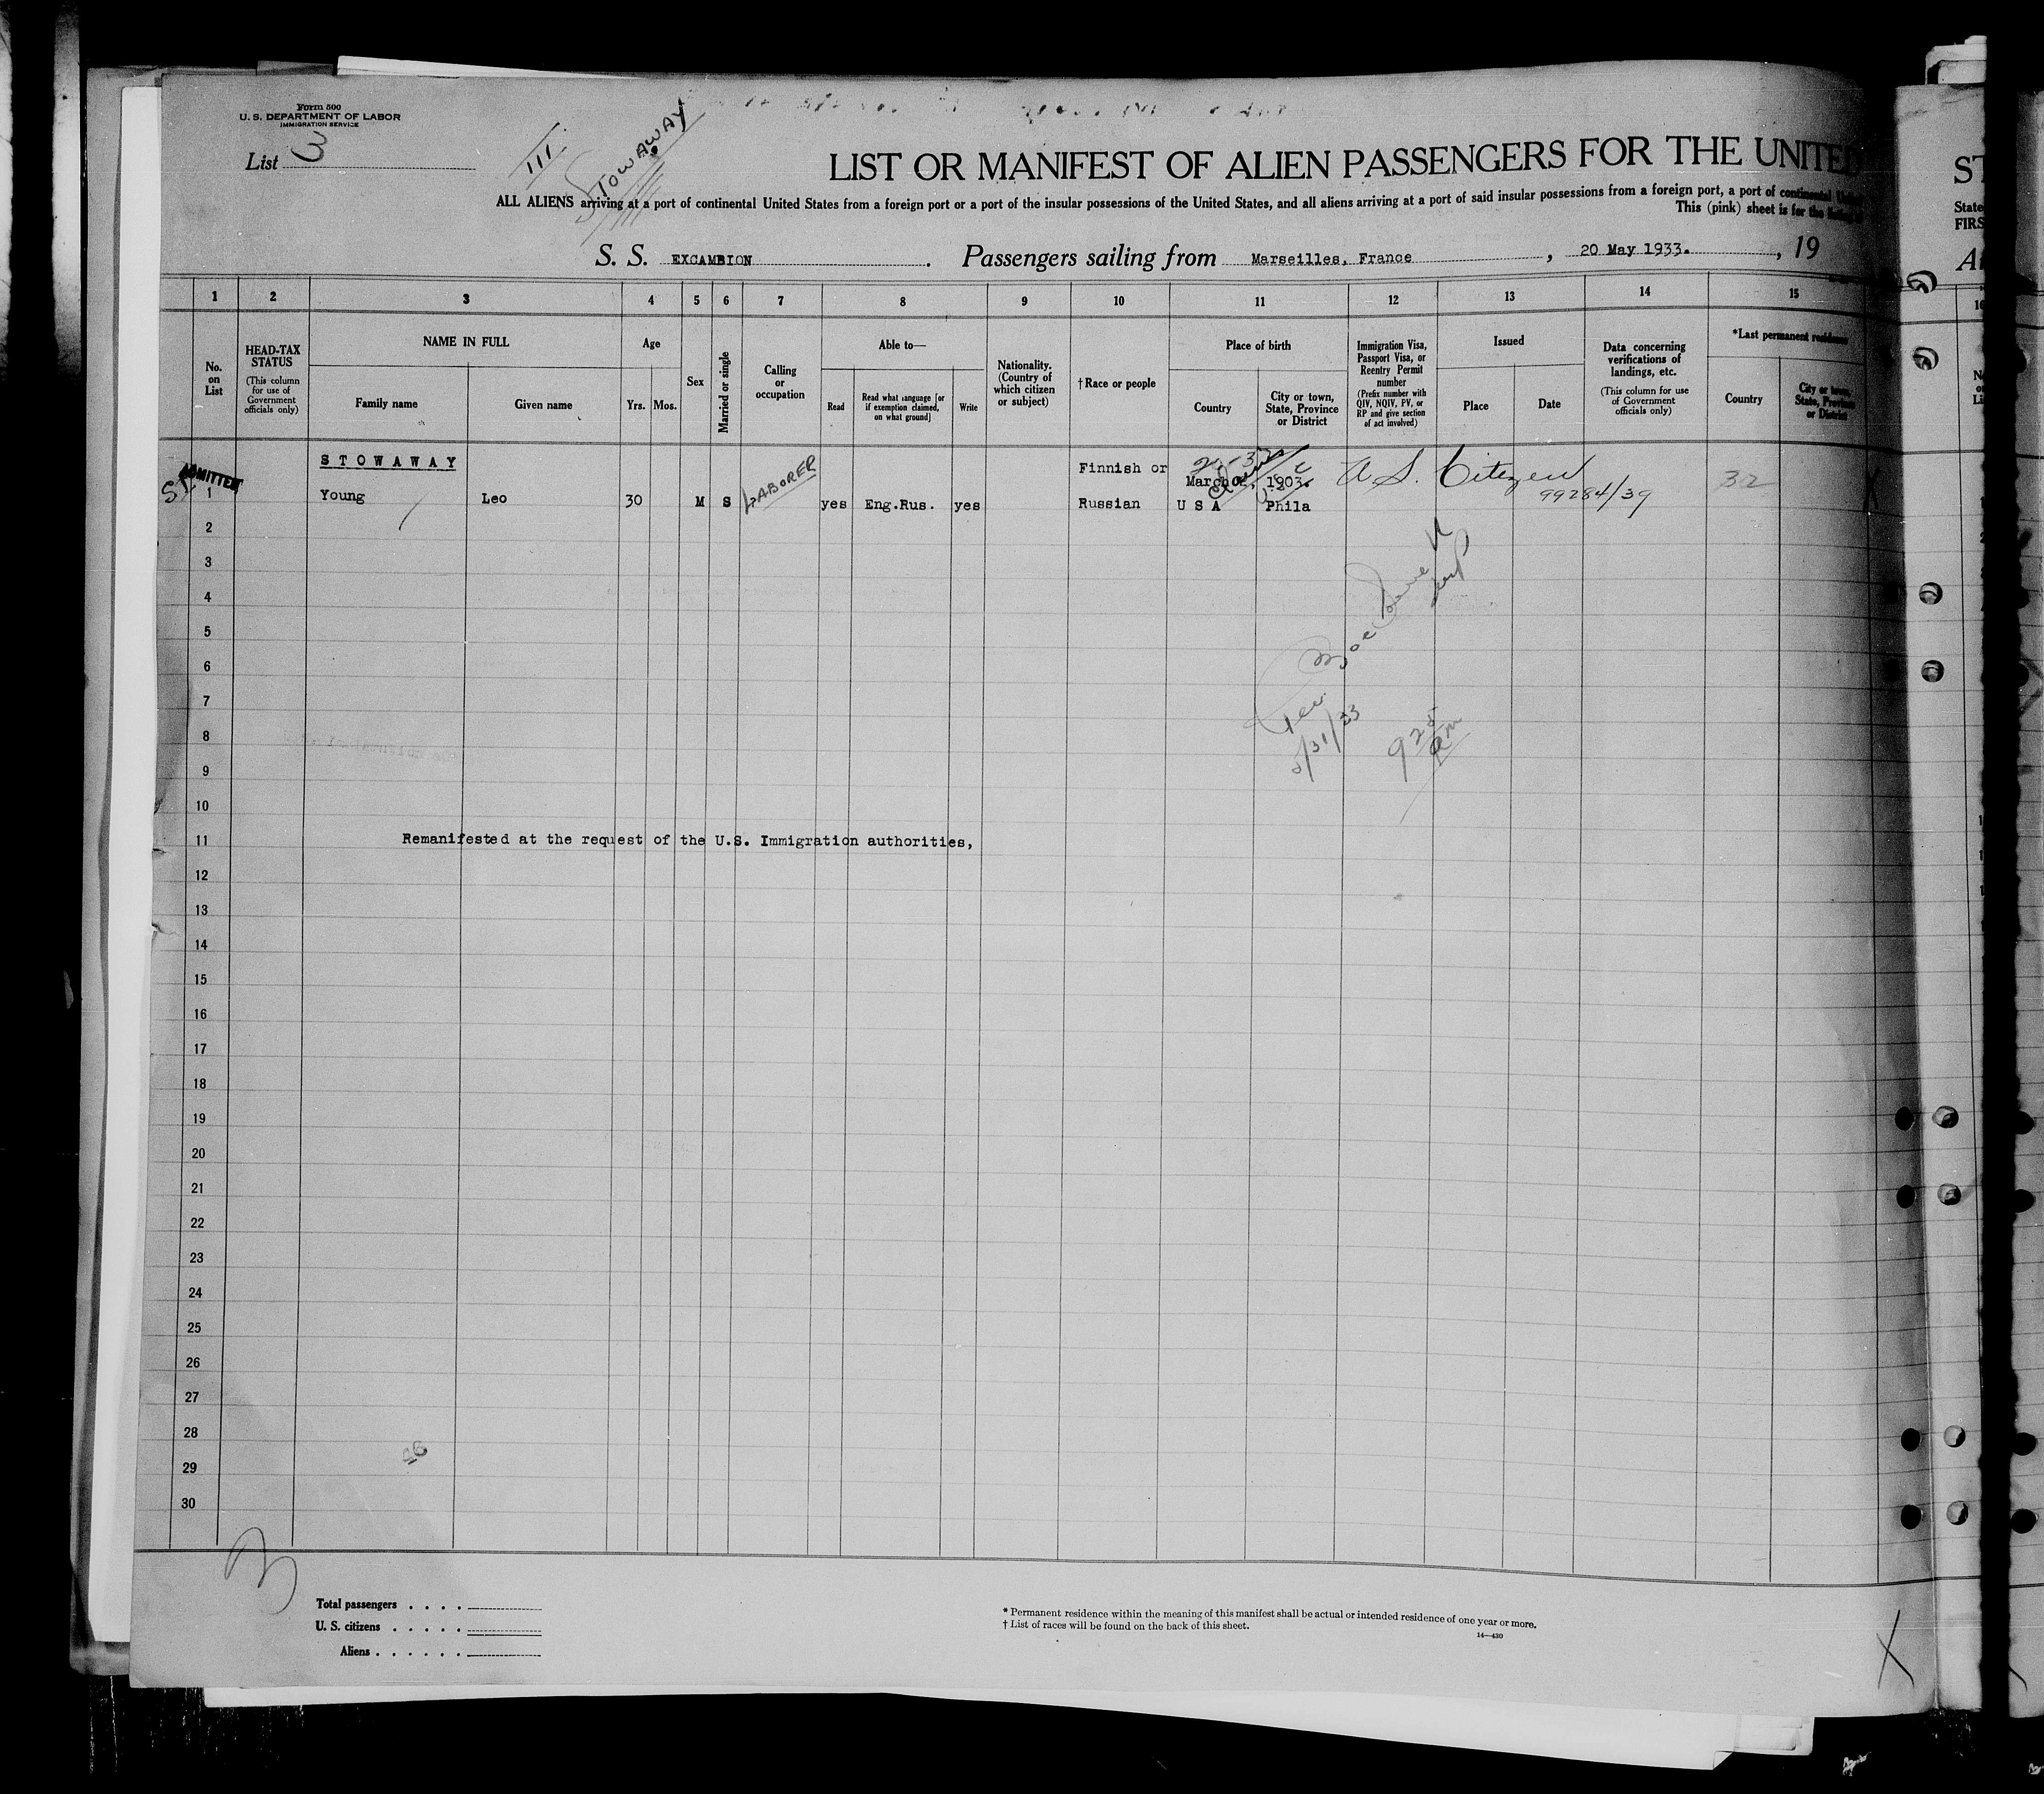 Form 500
U. S. DEPARTMENT OF LABOR
IMMIGRATION SERVICE
List 3
III
STOWAWAY
LIST OR MANIFEST OF ALIEN PASSENGERS FOR THE UNITED
ALL ALIENS arriving at a port of continental United States from a foreign port or a port of the insular possessions of the United States, and all aliens arriving at a port of said insular possessions from a foreign port, a port of continental
This (pink) sheet is for the
S. S. EXCAMBION. Passengers sailing from Marseilles, France, 20 May 1933., 19
ST
State
FIRS
1 2 3 4 5 6 7 8 9 10 11 12 13 14 15
No. on List
HEAD-TAX STATUS
(This column for use of Government officials only)
NAME IN FULL
Family name
Given name
Age
Yrs. Mos.
Sex
Married or single
Calling or occupation
Able to—
Read
Read what language [or if exemption claimed, on what ground]
Write
Nationality. (Country of which citizen or subject)
†Race or people
Place of birth
Country
City or town, State, Province or District
Immigration Visa, Passport Visa, or Reentry Permit number
(Prefix number with QIV, NQIV, PV, or RP and give section of act involved)
Issued
Place
Date
Data concerning verifications of landings, etc.
(This column for use of Government officials only)
*Last permanent residence
Country
City or town, State, Province or District
STOWAWAY
ADMITTED
Finnish or March 1903.
U.S. Citizen
99284/39
32
1 Young Leo 30 M S LABORER yes Eng.Rus. yes Russian U S A Phila
2
3
4
5
6
7
5/31/33
8
9 25 am
9
10
11 Remanifested at the request of the U.S. Immigration authorities,
12
13
14
15
16
17
18
19
20
21
22
23
24
25
26
27
28
29
30
3
Total passengers . . . .
U. S. citizens . . . . .
Aliens . . . . . .
* Permanent residence within the meaning of this manifest shall be actual or intended residence of one year or more.
† List of races will be found on the back of this sheet.
14—430
X